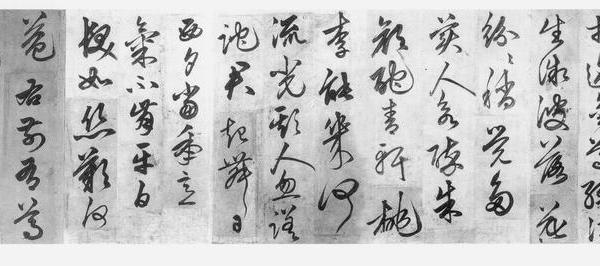 生微波落花
紛〻稍覺多
美人欲醉朱
顏酡青軒桃
李能幾何
流光欺人忽蹉
跎君起舞日
西夕當年意
氣不肯平白
髮如絲歎何
益右前有尊